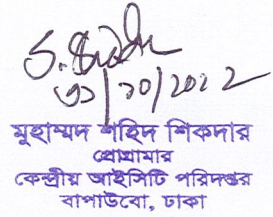 ৩১/১০/২০২২
মুহাম্মদ শহিদ শিকদার
প্রোগ্রামার
কেন্দ্রীয় আইসিটি পরিদপ্তর
বাপাউবো, ঢাকা